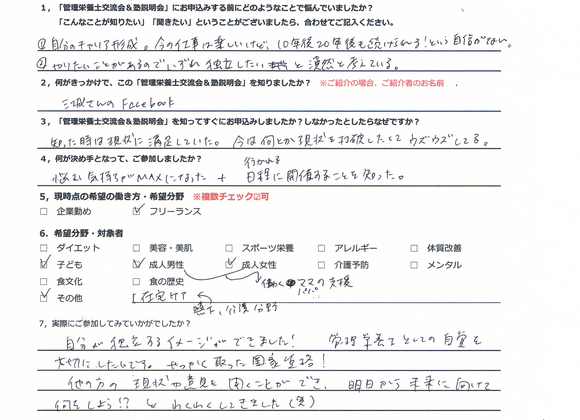 1，「管理栄養士交流会＆塾説明会」にお申込みする前にどのようなことで悩んでいましたか？
「こんなことが知りたい」「聞きたい」ということがございましたら、合わせてご記入ください。
①自分のキャリア形成。今の仕事は楽しいけど、10年後20年後も続けられる！という自信がない。
②やりたいことがあるのでいずれ独立したい と漠然と考えている。
2，何がきっかけで、この「管理栄養士交流会＆塾説明会」を知りましたか？ ※ご紹介の場合、ご紹介者のお名前
三城さんのFacebook
3，「管理栄養士交流会＆塾説明会」を知ってすぐにお申込みしましたか？しなかったとしたらなぜですか？
知った時は現状に満足していた。今は何とか現状を打破したくてウズウズしてる。
4，何が決め手となって、ご参加しましたか？
行かれる
悩む気持ちがMAXになった + 日程に開催することを知った。
5，現時点の希望の働き方・希望分野 ※複数チェック☑可
□ 企業勤め ☑ フリーランス
6．希望分野・対象者
□ ダイエット □ 美容・美肌 □ スポーツ栄養 □ アレルギー □ 体質改善
☑ 子ども ☑ 成人男性 ☑ 成人女性 □ 介護予防 □ メンタル
□ 食文化 □ 食の歴史 働くママの支援
パパ
☑ その他 [在宅ケア
嚥下、介護分野
7，実際にご参加してみていかがでしたか？
自分が独立するイメージができました！ 管理栄養士としての自覚を
大切にしたいです。せっかく取った国家資格！
他の方の現状や意見を聞くことができ、明日から未来に向けて
何をしよう!? とわくわくしてきました(笑)